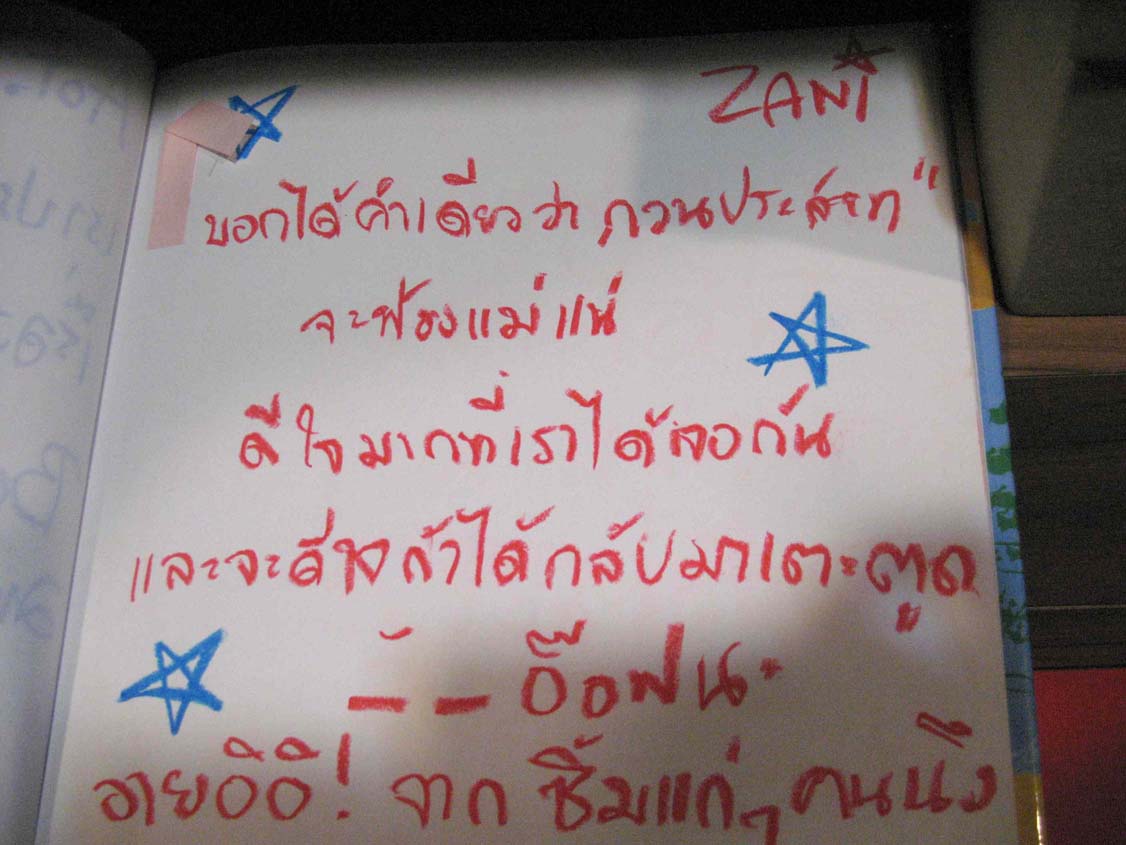 ZANi
บอกได้คำเดียวว่า กวนประสาท"
จะฟ้องแม่แน่
ดีใจมากที่เราได้เจอกัน
และจะดีใจถ้าได้กลับมาเตะตูด
อ๊อฟนะ
อายอิอิ! จาก ซิ้มแก่ๆ คนนึง